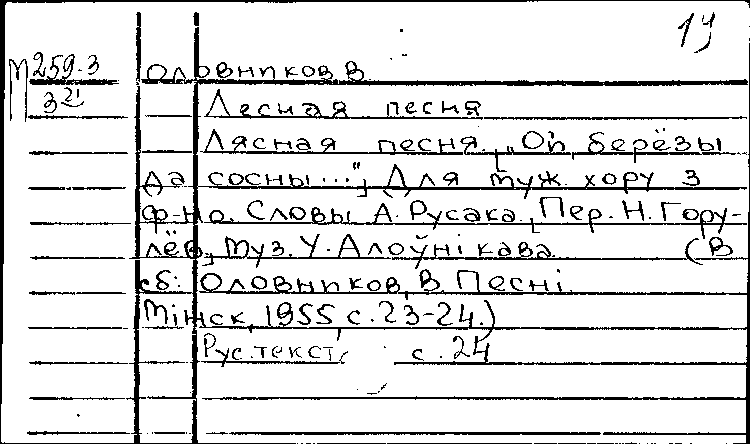 19
М 259.3 Оловников В.
3 21
Лесная песня
Лясная песня. [„Ой, берёзы
да сосны..."] Для муж. хору з
ф-но. Словы А. Русака. [Пер. Н. Гору-
лёв], Муз. У. Алоўнікава (В
сб: Оловников, В. Песні
Мінск, 1955, с. 23-24.)
Рус. текст, с. 24